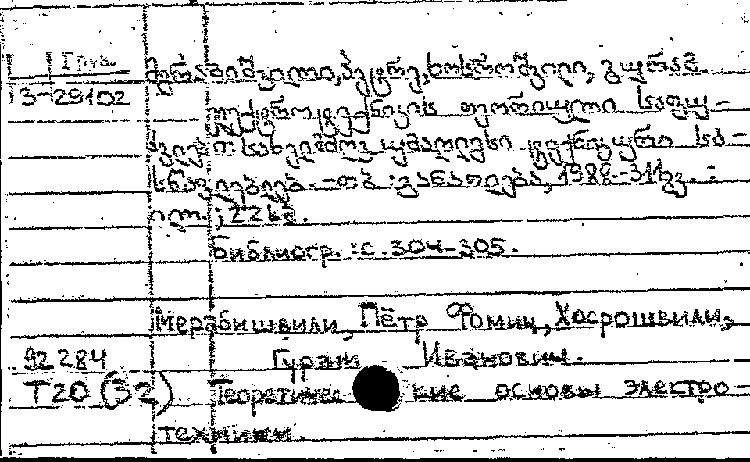 Груз.
მერაბიშვილი, პეტრე, ხოსროშვილი, გურამ
3-29102
ელექტროტექნიკის თეორიული საფუ-
ძვლები: სახელმძღვ. უმაღლესი ტექნიკური სა-
სწავლებლებ. - თბ.: განათლება, 1988.-311გვ. :
ილ.; 22სმ.
Библиогр.: с. 304-305.
Мерабишвили, Пётр Фомич, Хосрошвили,
92 284 Гурам Иванович.
Т20 (32) Теоретические основы электро-
техники.